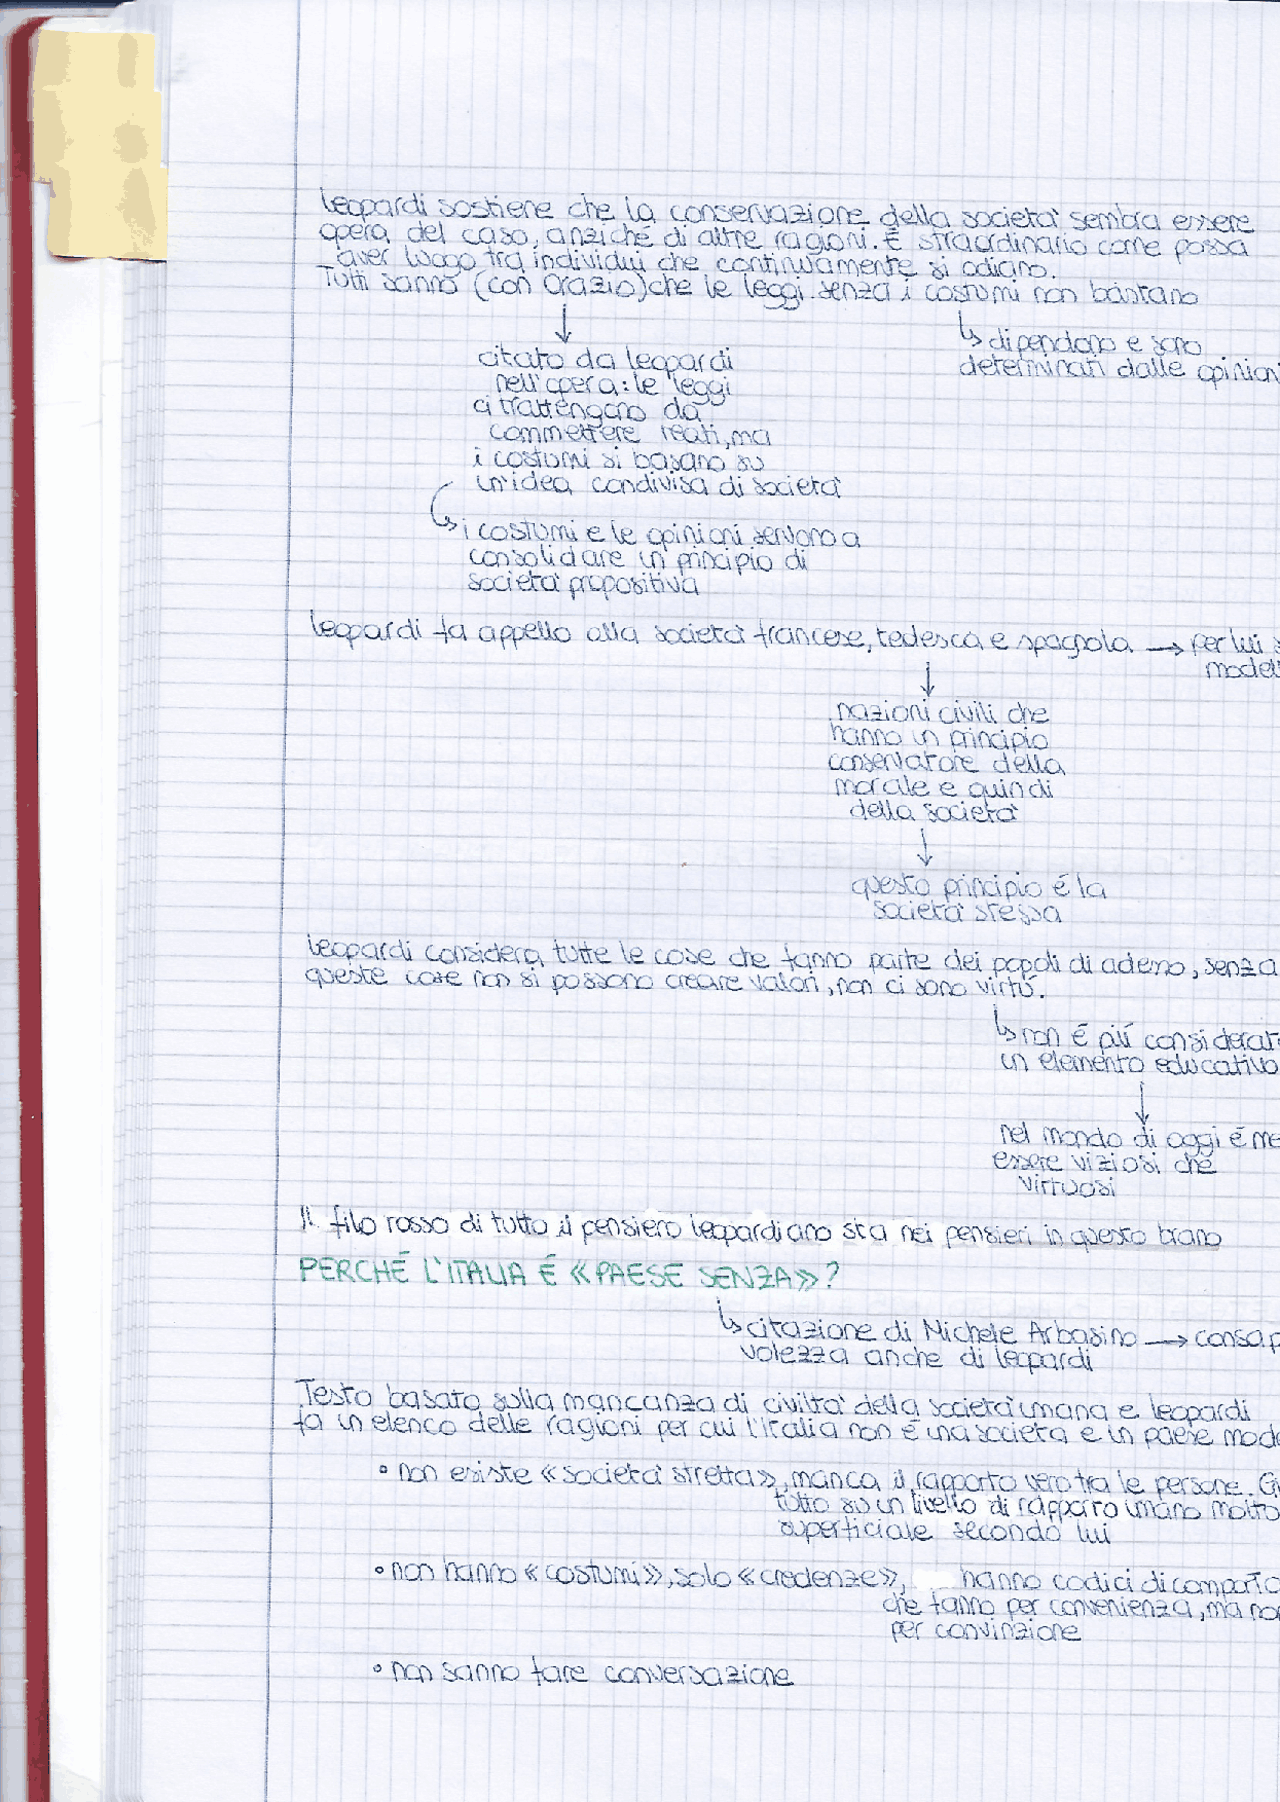 Leopardi sostiene che la conservazione della società sembra essere
opera del caso, anziché di altre ragioni. É straordinario come possa
aver luogo tra individui che continuamente si odiano.
Tutti sanno (con Orazio) che le leggi senza i costumi non bastano
↳ dipendono e sono
determinati dalle opinioni
↓
citato da Leopardi
nell'opera: le leggi
ci trattengono da
commettere reati, ma
i costumi si basano su
un'idea condivisa di società
↳ i costumi e le opinioni servono a
consolidare un principio di
società propositiva
Leopardi fa appello alla società francese, tedesca e spagnola → per lui s
model
↓
nazioni civili che
hanno un principio
conservatore della
morale e quindi
della società
↓
questo principio é la
società stessa
Leopardi considera tutte le cose che fanno parte dei popoli di adorno, senza
queste cose non si possono creare valori, non ci sono virtú.
↳ non é piú considerat
un elemento educativo
↓
nel mondo di oggi é me
essere viziosi che
virtuosi
Il filo rosso di tutto il pensiero leopardiano sta nei pensieri in questo brano
PERCHÉ L'ITALIA É «PAESE SENZA»?
↳ citazione di Michele Arbasino → consap
volezza anche di Leopardi
Testo basato sulla mancanza di civiltà della società umana e Leopardi
fa un elenco delle ragioni per cui l'Italia non é una società e un paese mode
• non esiste «società stretta», manca il rapporto vero tra le persone. Gi
tutto su un livello di rapporto umano molto
superficiale secondo lui
• non hanno «costumi», solo «credenze», hanno codici di comporta
che fanno per convenienza, ma non
per convinzione
• non sanno fare conversazione